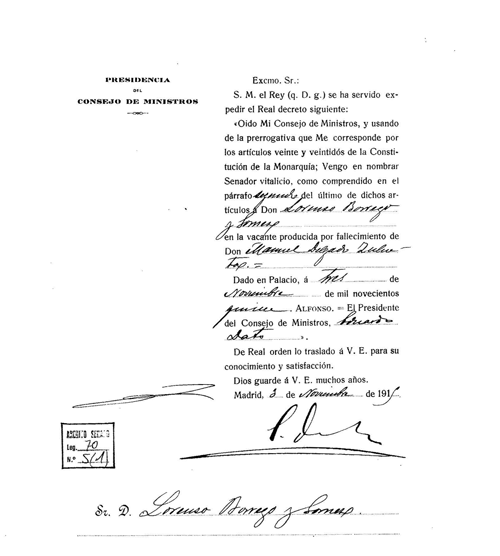 PRESIDENCIA
DEL
CONSEJO DE MINISTROS
Excmo. Sr.:
S. M. el Rey (q. D. g.) se ha servido ex-
pedir el Real decreto siguiente:
«Oido Mi Consejo de Ministros, y usando
de la prerrogativa que Me corresponde por
los artículos veinte y veintidós de la Consti-
tución de la Monarquía; Vengo en nombrar
Senador vitalicio, como comprendido en el
párrafo segundo del último de dichos ar-
tículos á Don Lorenzo Borrego
y Gomez
en la vacante producida por fallecimiento de
Don Manuel Delgado Zulue-
ta. =
Dado en Palacio, á tres de
Noviembre de mil novecientos
quince. ALFONSO. = El Presidente
del Consejo de Ministros, Eduardo
Dato ».
De Real orden lo traslado á V. E. para su
conocimiento y satisfacción.
Dios guarde á V. E. muchos años.
Madrid, 3 de Noviembre de 1915
Leg. 70
N.º 5(1)
Sr. D. Lorenzo Borrego y Gomez.